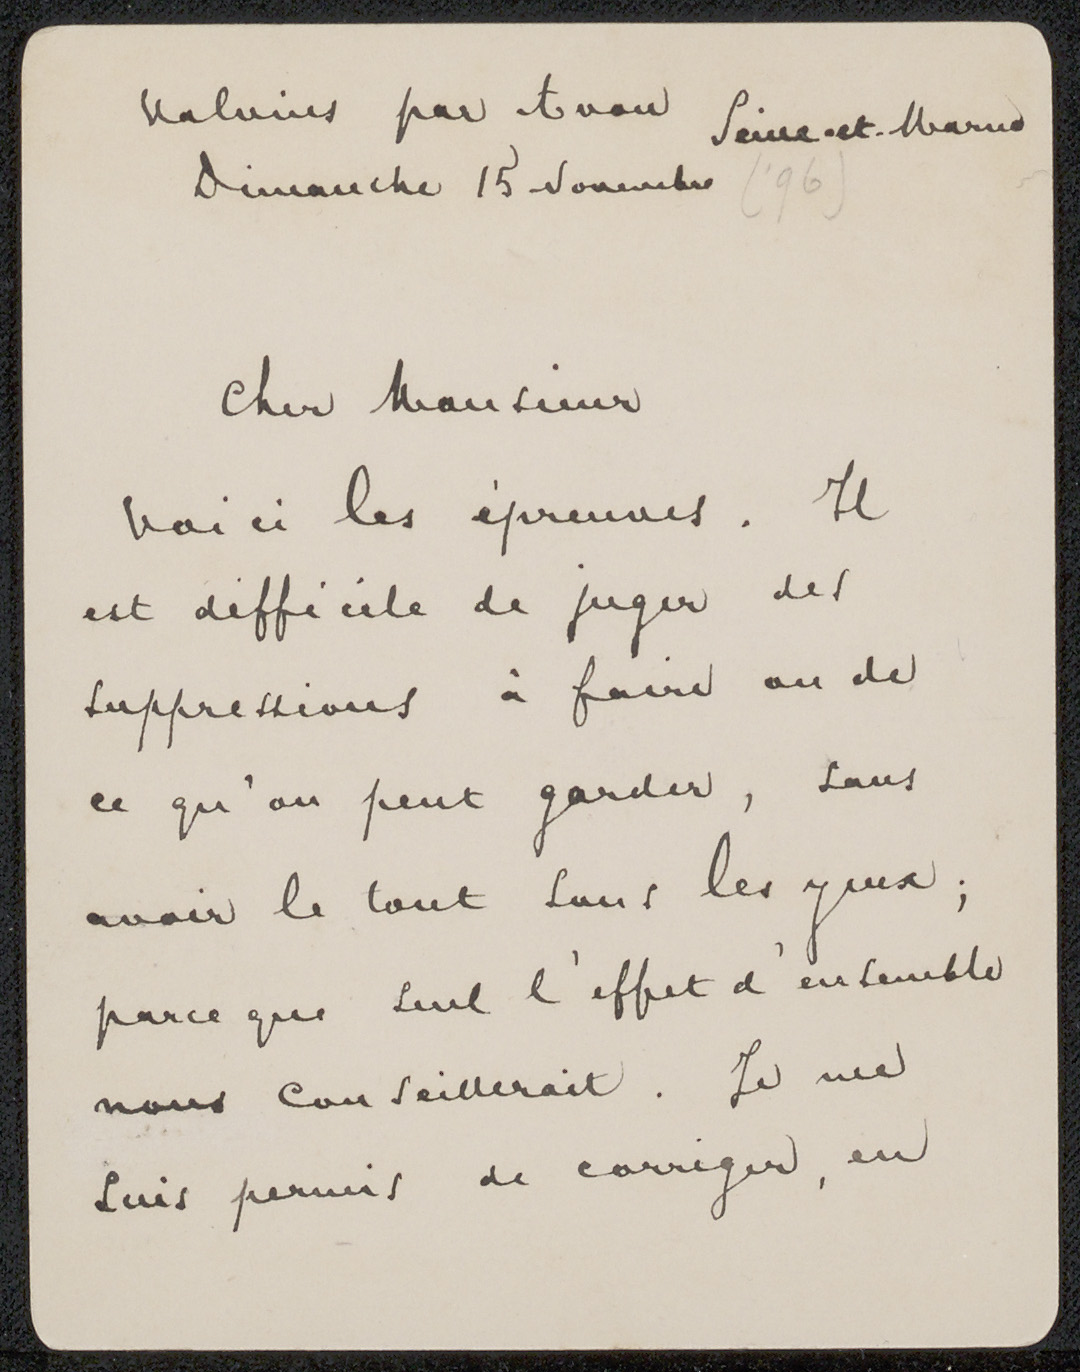 Valvins par Avon Seine-et-Marne
Dimanche 15 Novembre ('96)
Cher Monsieur
Voici les épreuves. Il
est difficile de juger des
suppressions à faire ou de
ce qu'on peut garder, sans
avoir le tout sous les yeux;
parce que seul l'effet d'ensemble
nous conseillerait. Je me
suis permis de corriger, en